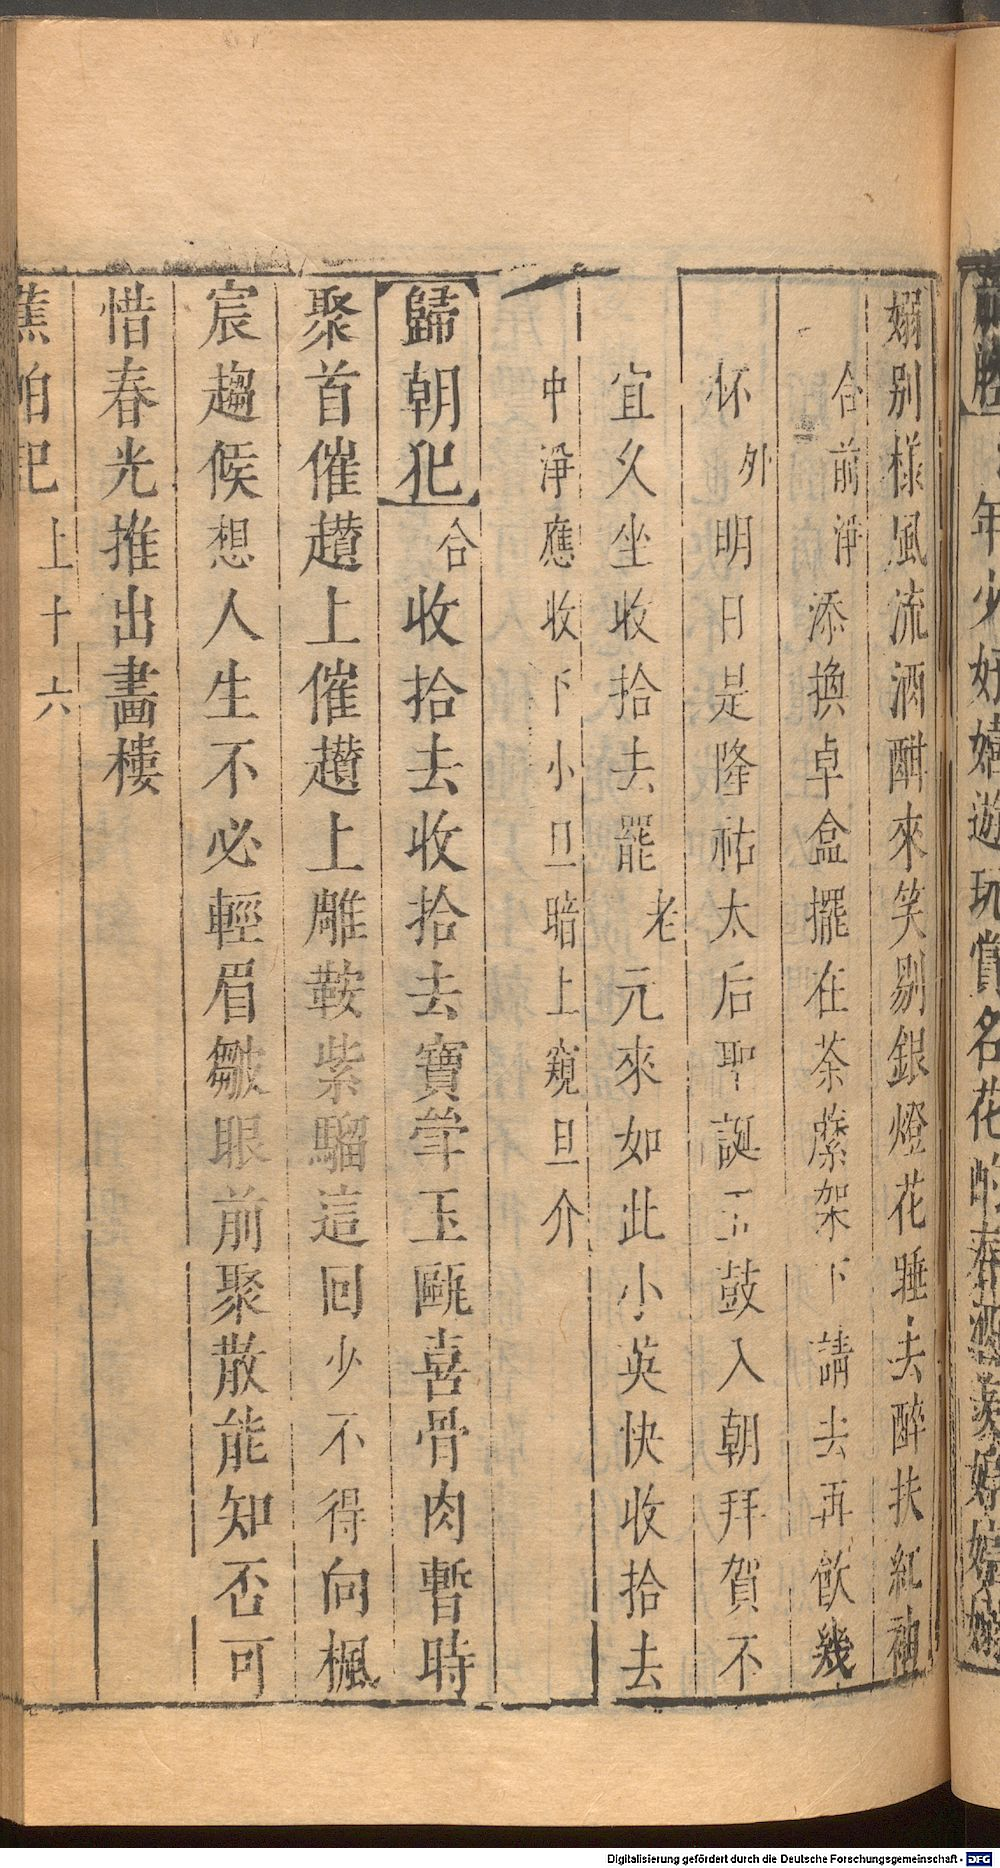 年少好嬉遊玩賞名花
嫋别樣風流酒酣來笑剔銀燈花睡去醉扶紅袖
合前淨添換卓盒擺在茶䕷架下請去再飲幾
杯外明日是隆祐太后聖誕五鼓入朝拜賀不
宜久坐收拾去罷老元來如此小英快收拾去
中淨應收下小旦暗上窺旦介
歸朝犯合收拾去收拾去寶斝玉甌喜骨肉暫時
聚首催趲上催趲上雕鞍紫騮這回少不得向楓
宸趨候想人生不必輕眉皺眼前聚散能知否可
惜春光推出畫樓
蕉帕記上十六
Digitalisierung gefördert durch die Deutsche Forschungsgemeinschaft - DFG